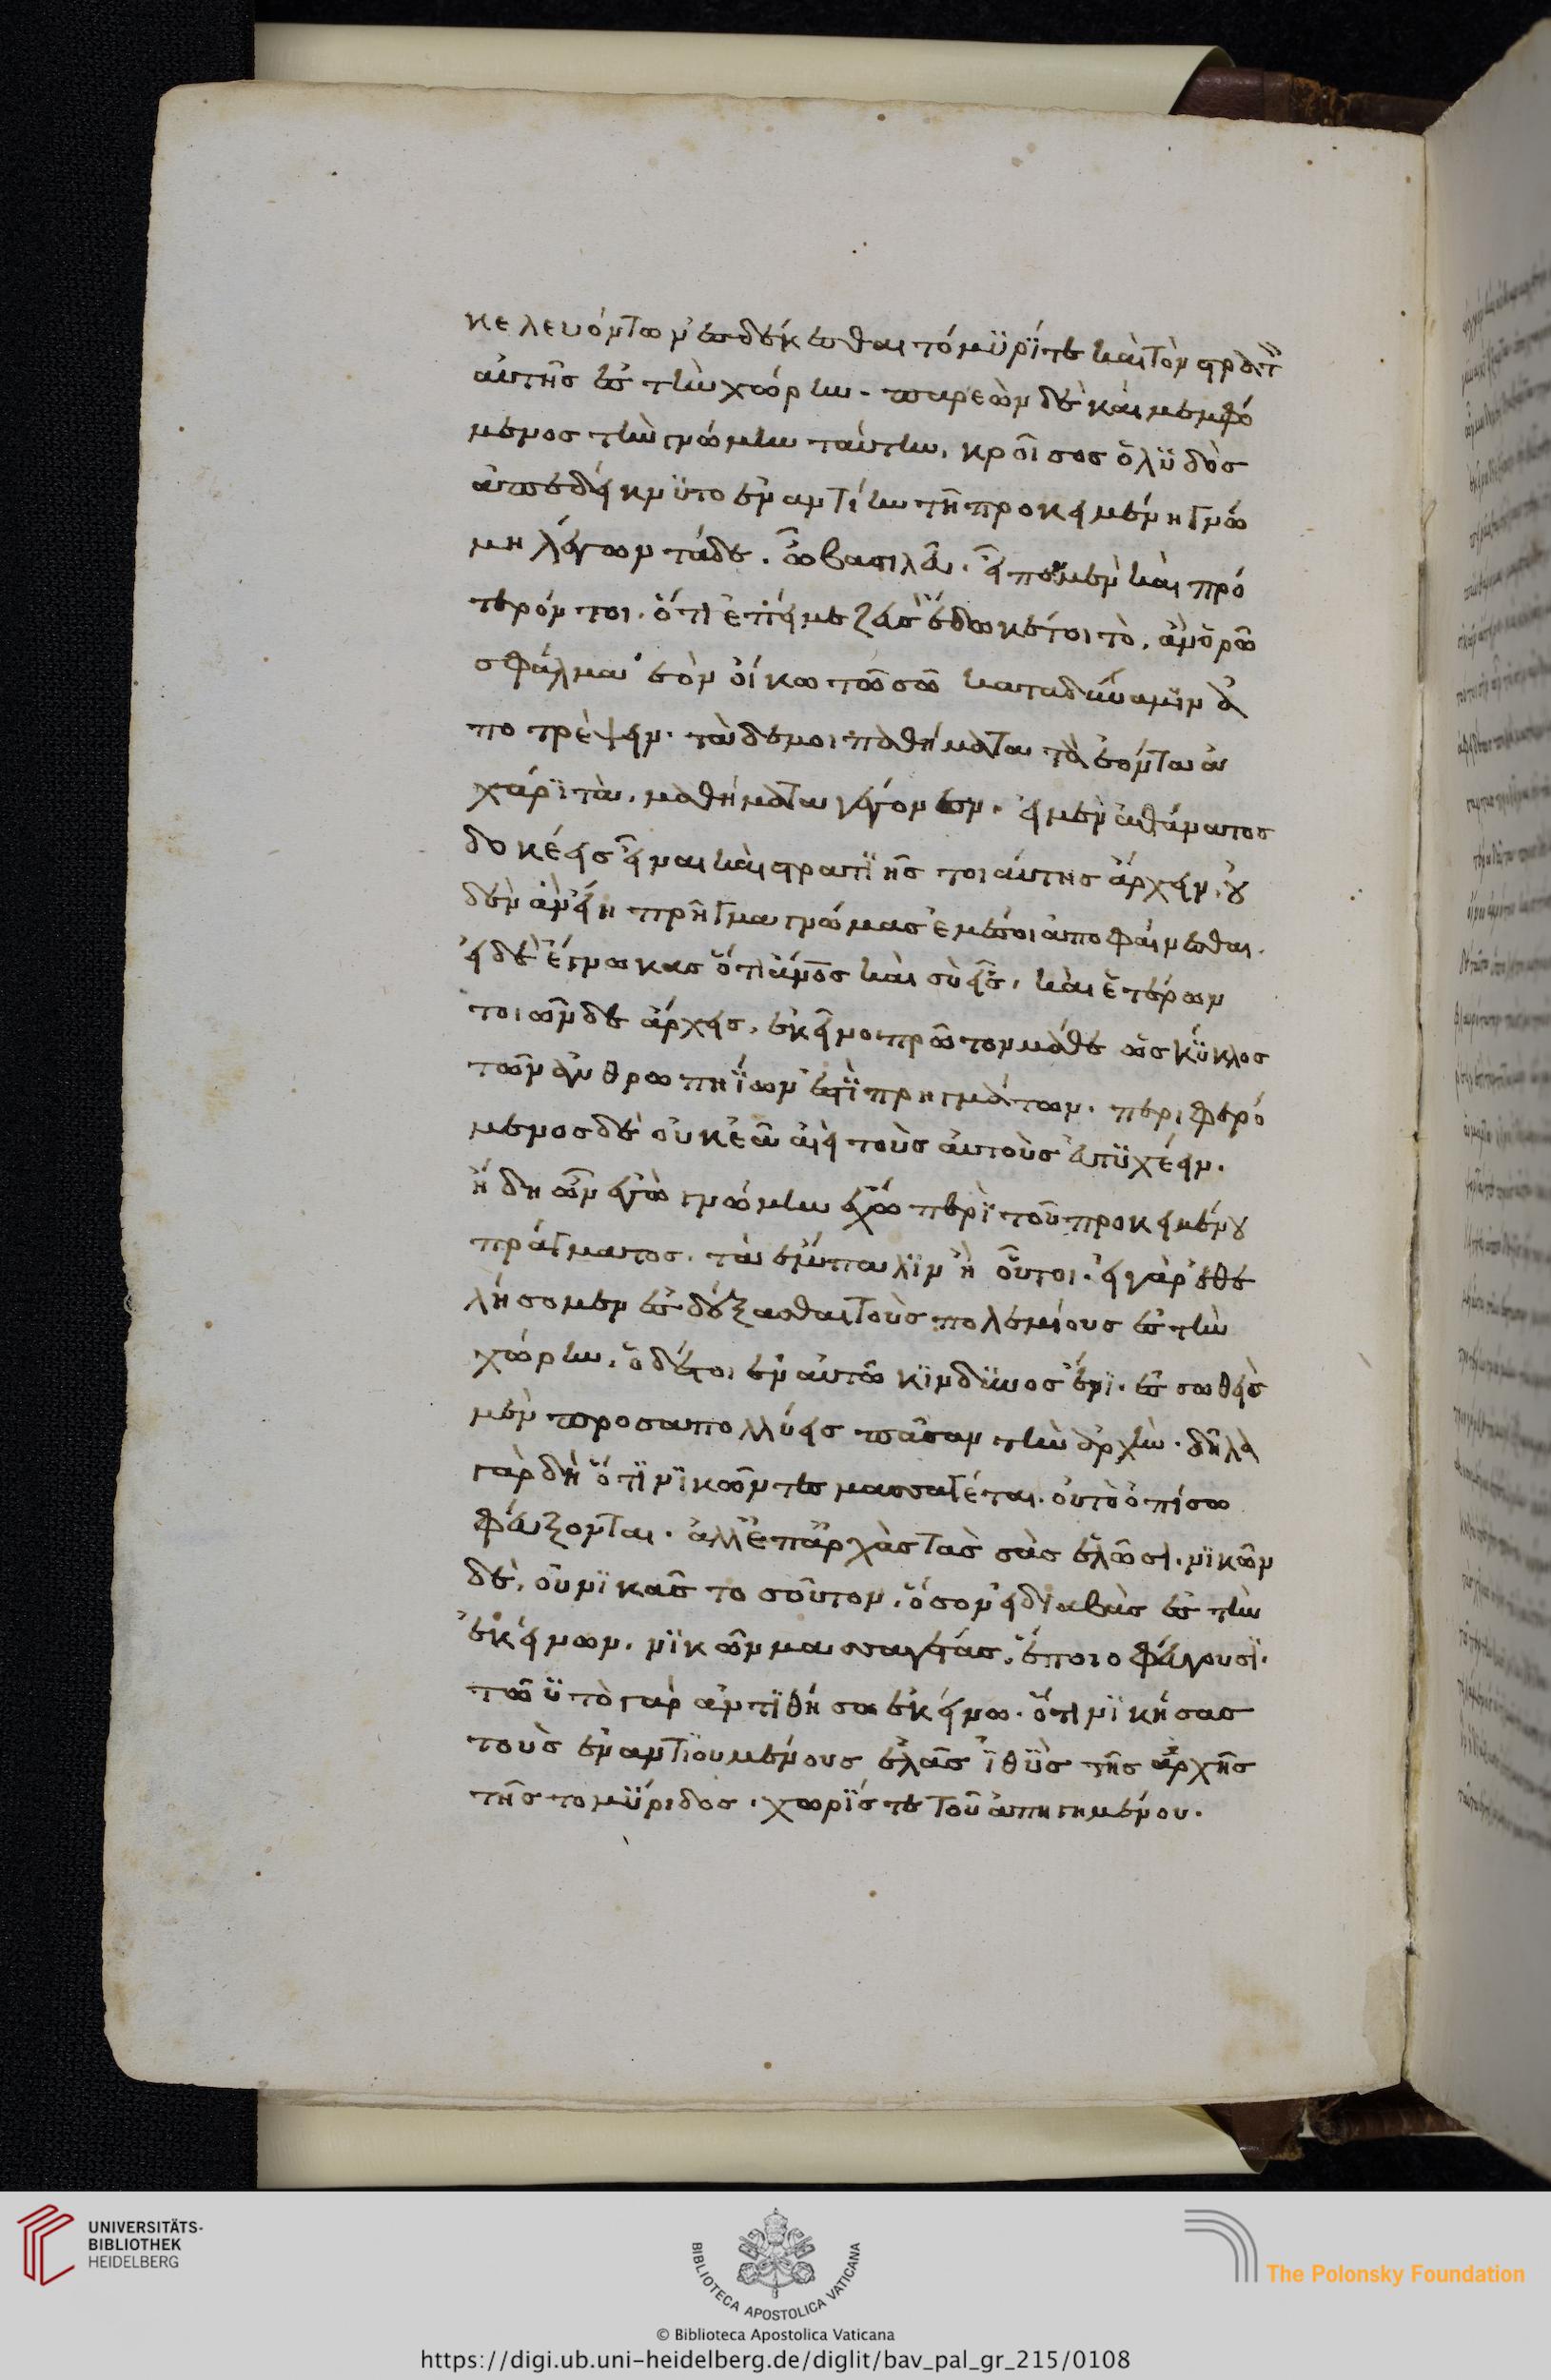 κελευόντων ἐσδέκεσθαι τόμϋρίν τε καὶ τὸν στρατὸν
αὐτῆς ἐς τὴν χώρην. παρεὼν δὲ καὶ μεμφό
μενος τὴν γνώμην ταύτην, κροῖσος ὁ λϋδὸς
ἀπεδείκνϋτο ἐναντίην τῆ προκειμένη γνώ
μη λέγων τάδε. ὦ βασιλεῦ. εἶπον μὲν καὶ πρό
τερόν τοι. ὅτι ἐπεί με ζεὺς ἔδωκέ τοι τὸ, ἂν ὁρῶ
σφάλμα ἐὸν οἴκω τῶ σῶ κατὰ δύναμϊν ἀ
ποτρέψειν. τὰ δέ μοι παθήματα τὰ ἐόντα ἀ
χάρϊτα, μαθήματα γέγονεν. εἰ μὲν ἀθάνατος
δοκέεις εἶναι καὶ στρατϊῆς τοιαύτης ἄρχειν, οὐ
δὲν ἂν εἴη πρῆγμα γνώμας ἐμέ σοι ἀποφαίνεσθαι.
εἰ δὲ ἔγνωκας ὅτι ἄνθρωπος καὶ σὺ εἶς, καὶ ἑτέρων
τοιῶνδε ἄρχεις, ἐκεῖνο πρῶτον μάθε ὡς κϋκλος
τῶν ἀνθρωπηΐων ἐστὶ πρηγμάτων. περιφερό
μενος δὲ οὐκ ἐᾶ αἰεὶ τοὺς αὐτοὺς εὐτϋχέειν.
ἤδη ὦν ἐγὼ γνώμην ἔχω περὶ τοῦ προκειμένου
πράγματος. τὰ ἔμπαλϊν ἢ οὗτοι. εἰ γὰρ ἐθε
λήσομεν ἐσδέξασθαι τοὺς πολεμίους ἐς τὴν
χώρην, ὅδε τοι ἐν αὐτῶ κϊνδϋνος ἔνϊ. ἐσσωθεὶς
μὲν προσαπολλύεις πᾶσαν τὴν ἀρχὴν. δῆλα
γὰρ δὴ ὅτϊ νϊκῶντες μασσαγέται. οὐ τὸ ὀπίσω
φεύξονται. ἀλλ' ἐπ' ἀρχὰς τὰς σὰς ἐλῶσι. νϊκῶν
δὲ, οὐ νϊκᾶς τοσοῦτον, ὅσον εἰ διαβὰς ἐς τὴν
ἐκείνων, νϊκῶν μασσαγέτας, ἕποιο φεύγουσϊ.
τωϋτὸ γὰρ ἀντϊθήσω ἐκείνω. ὅτι νϊκήσας
τοὺς ἐναντϊουμένους ἐλᾶς ἰθϋς τῆς ἀρχῆς
τῆς τομϋριδος. χωρίς τε τοῦ ἀπηγημένου.
UNIVERSITÄTS-
BIBLIOTHEK
HEIDELBERG
BIBLIOTECA APOSTOLICA VATICANA
The Polonsky Foundation
© Biblioteca Apostolica Vaticana
https://digi.ub.uni-heidelberg.de/diglit/bav_pal_gr_215/0108